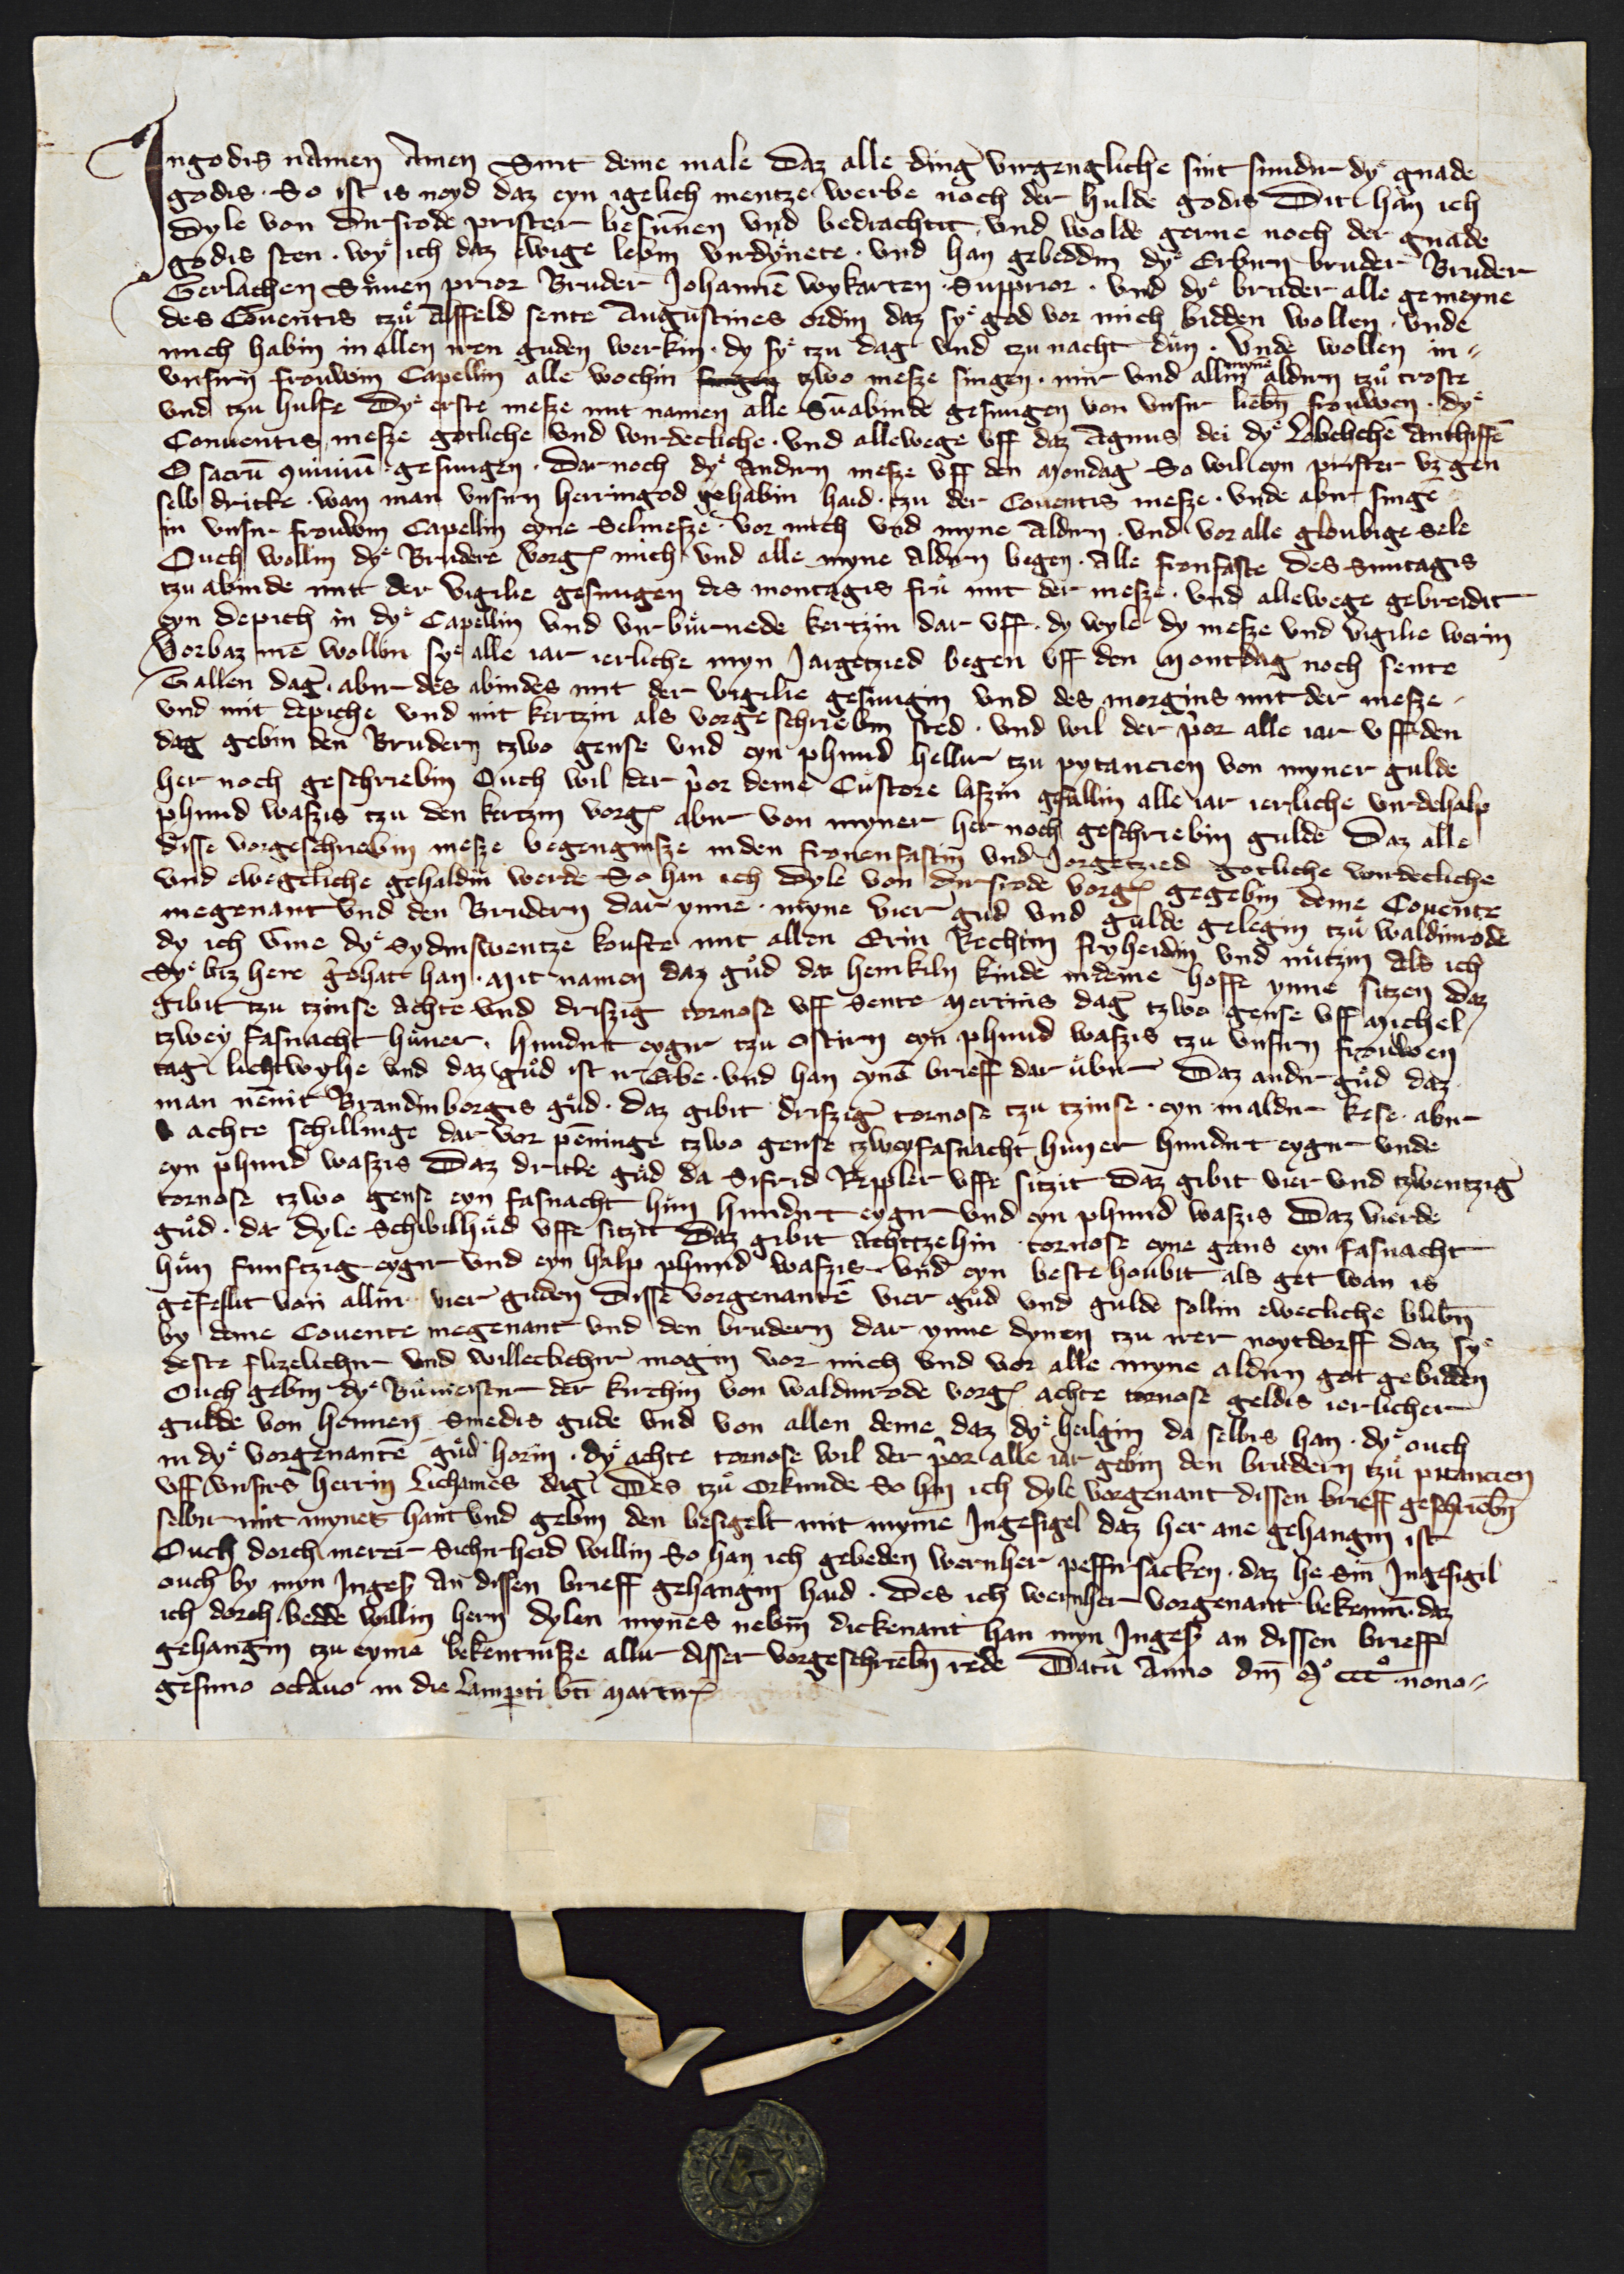 In godis namen Amen Sint deme male Daz alle ding virgengliche sint sundir dye gnade
godis · So ist is noyd daz eyn igelich mentze werbe noch der hulde godis Dit han ich
Dyle von Dirsrode prister besunnen und bedrachtit und wolde gerne noch der gnade
godis sten · wye ich daz ewige lebin virdynete · und han gebeddin dye Erbirn bruder Bruder
Gerlachen Sůnen prior Bruder Johannē wykarten · Supprior · und dye bruder alle gemeyne
des Couentis tzů Alffeld sente Augustines ordin daz sye god vor mich bidden wollen · unde
mich habin in allen iren guden werkin · dy sye tzu dag und tzu nacht důn · Unde wollen in
unsirn frouwin Capellin alle wochin tzwo mesze singen · mir und allin mynē aldirn tzů troste
und tzu hulfe Dye erste mesze mit namen alle Sūabinde gesungen von unsir liebn̄ frouwen · dye
Conuentis mesze gotliche und wirdecliche · und allewege uff daz Agnus dei dye Lobelichē Anthiffē
O sacrū ꝯuiuiū · gesungen · Dar noch dye Andirn mesze uff den Mondag So wil eyn prister uz gen
selb dritte · wan man unsirn herringod gehabin haid · tzu der Couentis mesze · unde abir singē
in unsir frouwin Capellin eyne Selmesze · vor mich und myne Aldirn · und vor alle gloubige Sele
Ouch wollin dye Brudere vorg mich und alle myne Aldirn begen · Alle fronfaste Des Suntagis
tzu abinde mit der vigilie gesungen des montagis frů mit der mesze · und allewege gebreidit
eyn depich in dye Capellin und vir bůrnede kertzin dar uff · dy wyle dy mesze und vigilie werin
Vorbaz me wollin sye alle iar ierliche myn Jargetzied begen uff den Montdag noch sente
Gallen dag · abir des abindes mit der vigilie gesungin und des morgins mit der mesze
und mit depiche und mit kertzin als vorgeschriebin sted · und wil der p̄or alle iar uff den
dag gebin den Brudern tzwo gense und eyn phund hellir tzu pytancien von myner gulde
her noch geschriebin Ouch wil der p̄or deme Custore laszin gefallin alle iar ierliche virdehalp
phund waszis tzu den kertzin vorg abir von myner her noch geschriebin gulde Daz alle
disse vorgeschriebin mesze begengnisze in den fronenfastin und Jorgetzied gotliche wirdecliche
und eweglliche gehaldin werde So han ich Dyle von dirsrode vorg gegebin deme Couente
megenant und den Brudern dar ynne · myne vier gud und gulde gelegin tzů waldinrode
dy ich ūme dye Sydinswentze koufte mit allen Erin Rechtin fryheidin und nůtzin Als ich
Sye biz here gehatt han · Mit namen daz gůd da henkiln kinde in deme hoffe ynne sitzen daz
gibit tzu tzinse Achte und driszig tornose uff Sente Mertins dag tzwo gense uff Michel
tzwey fasnacht hůner · hundirt eygir tzu ostirn eyn phund waszis tzu unsirn frouwen
tag lichtwyhe und daz gůd ist ir Erbe · und han eynē brieff dar ůbir Daz andir gůd daz
man nennit Brandinborgis gůd · daz gibit driszig tornose tzu tzinse · eyn maldir kese · abir
achte schillinge dar vor pēninge tzwo gense tzwey fasnacht huner hundirt eygir unde
eyn phund waszis Daz dritte gůd da Sifrid Keppler uffe sitzit Daz gibit vier und tzwentzig
tornose tzwo gense eyn fasnacht hůn hundirt eygir und eyn phund waszis Daz vierde
gůd · da Dyle Schwilhud uffe sitzit Daz gibit Achttzehin tornose eyne gans eyn fasnacht
hůn funftzig eygir und eyn halp phund waszis · und eyn beste houbit als get wan is
gefellit von allin vier guden Disse vorgenantē vier gůd und gulde sollin ewecliche blibn̄
by deme Couente megenant und den brudern dar ynne dynen tzu irer noytdorff daz sye
deste flizelichir und willeclichir mogin vor mich und vor alle myne aldirn got gebidden
Ouch gebin dye Bůmeistir der kirchin von waldinrode vorg achte tornose geldis ierlicher
gulde von hennen Smedis gude und von allen deme daz dye heilgin da selbis han · dye ouch
in dye vorgenantē gůd horin · dye achte tornose wil der p̄or alle iar gebin den brudern tzů pitancien
uff unsirs herrin Lichames dag Des tzů orkunde So han ich dyle vorgenant dissen brieff geschriebn̄
selbir mit mynes hant und gebin den besigelt mit myme Ingesigel daz her ane gehangin ist
Ouch dorch merer Sichirheid willin So han ich gebeden wernher peffirsacken · daz he Sin Ingesigil
ouch by myn Inges an dissen brieff gehangin haid · Des ich wernher vorgenant bekennē · daz
ich dorch bedde willin hern dylen mynes nebin dickenant han myn Inges an dissen brieff
gehangin tzu eyme bekentnisze allir disser vorgeschriebn̄ rede Datū Anno dm̄ Mº cccº nono
gesimo octauo in die Lamp̱ti bt̄i Martir